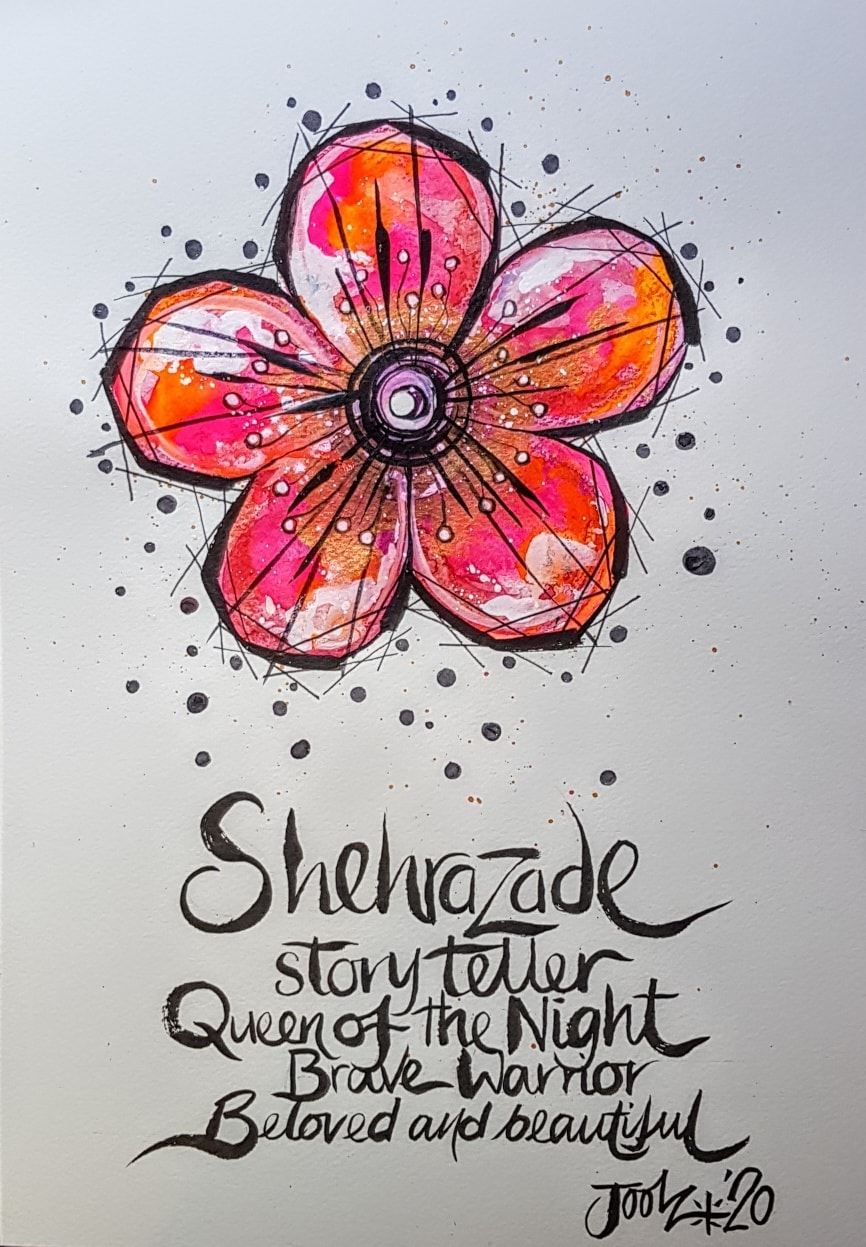 Shehrazade
story teller
Queen of the Night
Brave Warrior
Beloved and beautiful
Joolz * '20